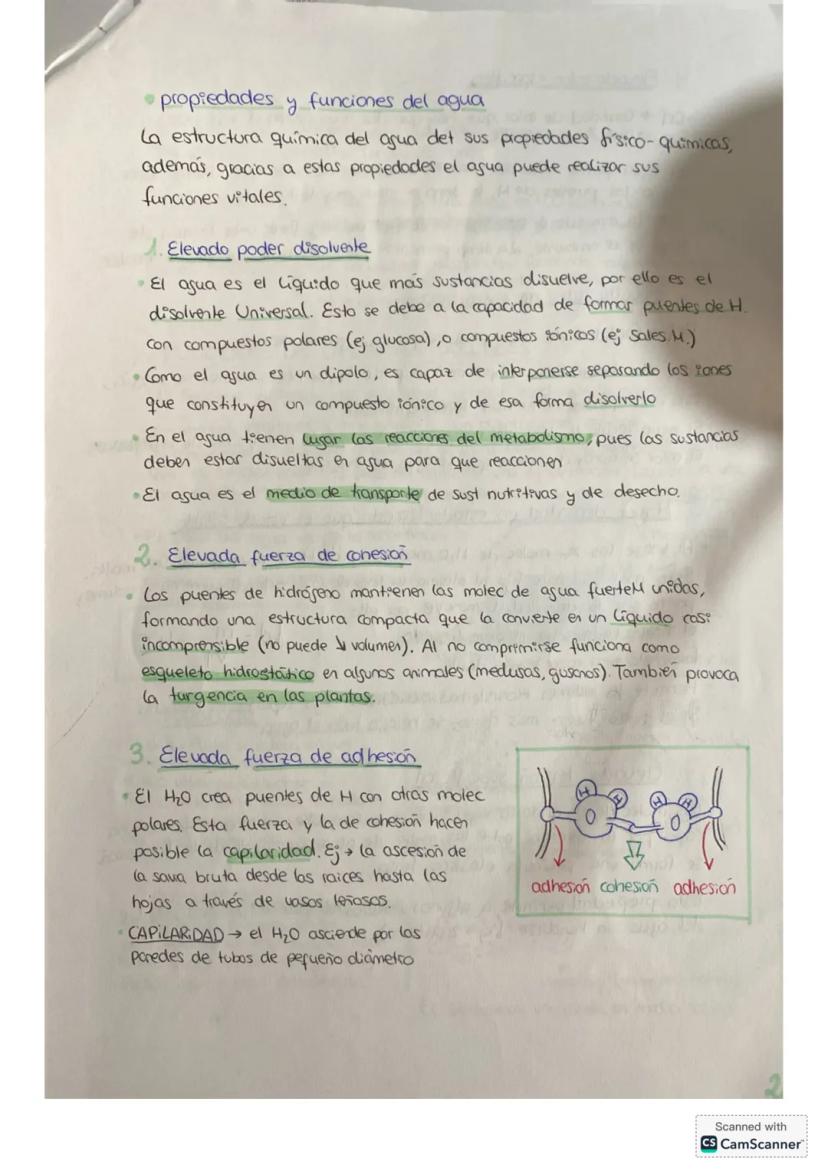 • propiedades y funciones del agua
La estructura química del agua det sus propiedades físico-químicas,
además, gracias a estas propiedades el agua puede realizar sus
funciones vitales.
1. Elevado poder disolvente
• El agua es el líquido que más sustancias disuelve, por ello es el
disolvente Universal. Esto se debe a la capacidad de formar puentes de H.
con compuestos polares (ej glucosa), o compuestos iónicos (ej Sales M.)
• Como el agua es un dipolo, es capaz de interponerse separando los iones
que constituyen un compuesto iónico y de esa forma disolverlo
• En el agua tienen lugar las reacciones del metabolismo, pues las sustancias
deben estar disueltas en agua para que reaccionen
• El agua es el medio de transporte de sust nutritivas y de desecho.
2. Elevada fuerza de cohesión
• Los puentes de hidrógeno mantienen las molec de agua fuerteM unidas,
formando una estructura compacta que la convierte en un líquido casi
incomprensible (no puede ↓ volumen). Al no comprimirse funciona como
esqueleto hidrostático en algunos animales (medusas, gusanos). También provoca
la turgencia en las plantas.
3. Elevada fuerza de adhesión
• El H₂O crea puentes de H con otras molec
polares. Esta fuerza y la de cohesión hacen
posible la capilaridad. Ej → la ascesión de
la sava bruta desde las raices hasta las
hojas a través de vasos leñosos.
• CAPILARIDAD → el H₂O asciende por las
paredes de tubos de pequeño diámetro
H H H H
O O
adhesión cohesión adhesión
2
Scanned with
CS CamScanner